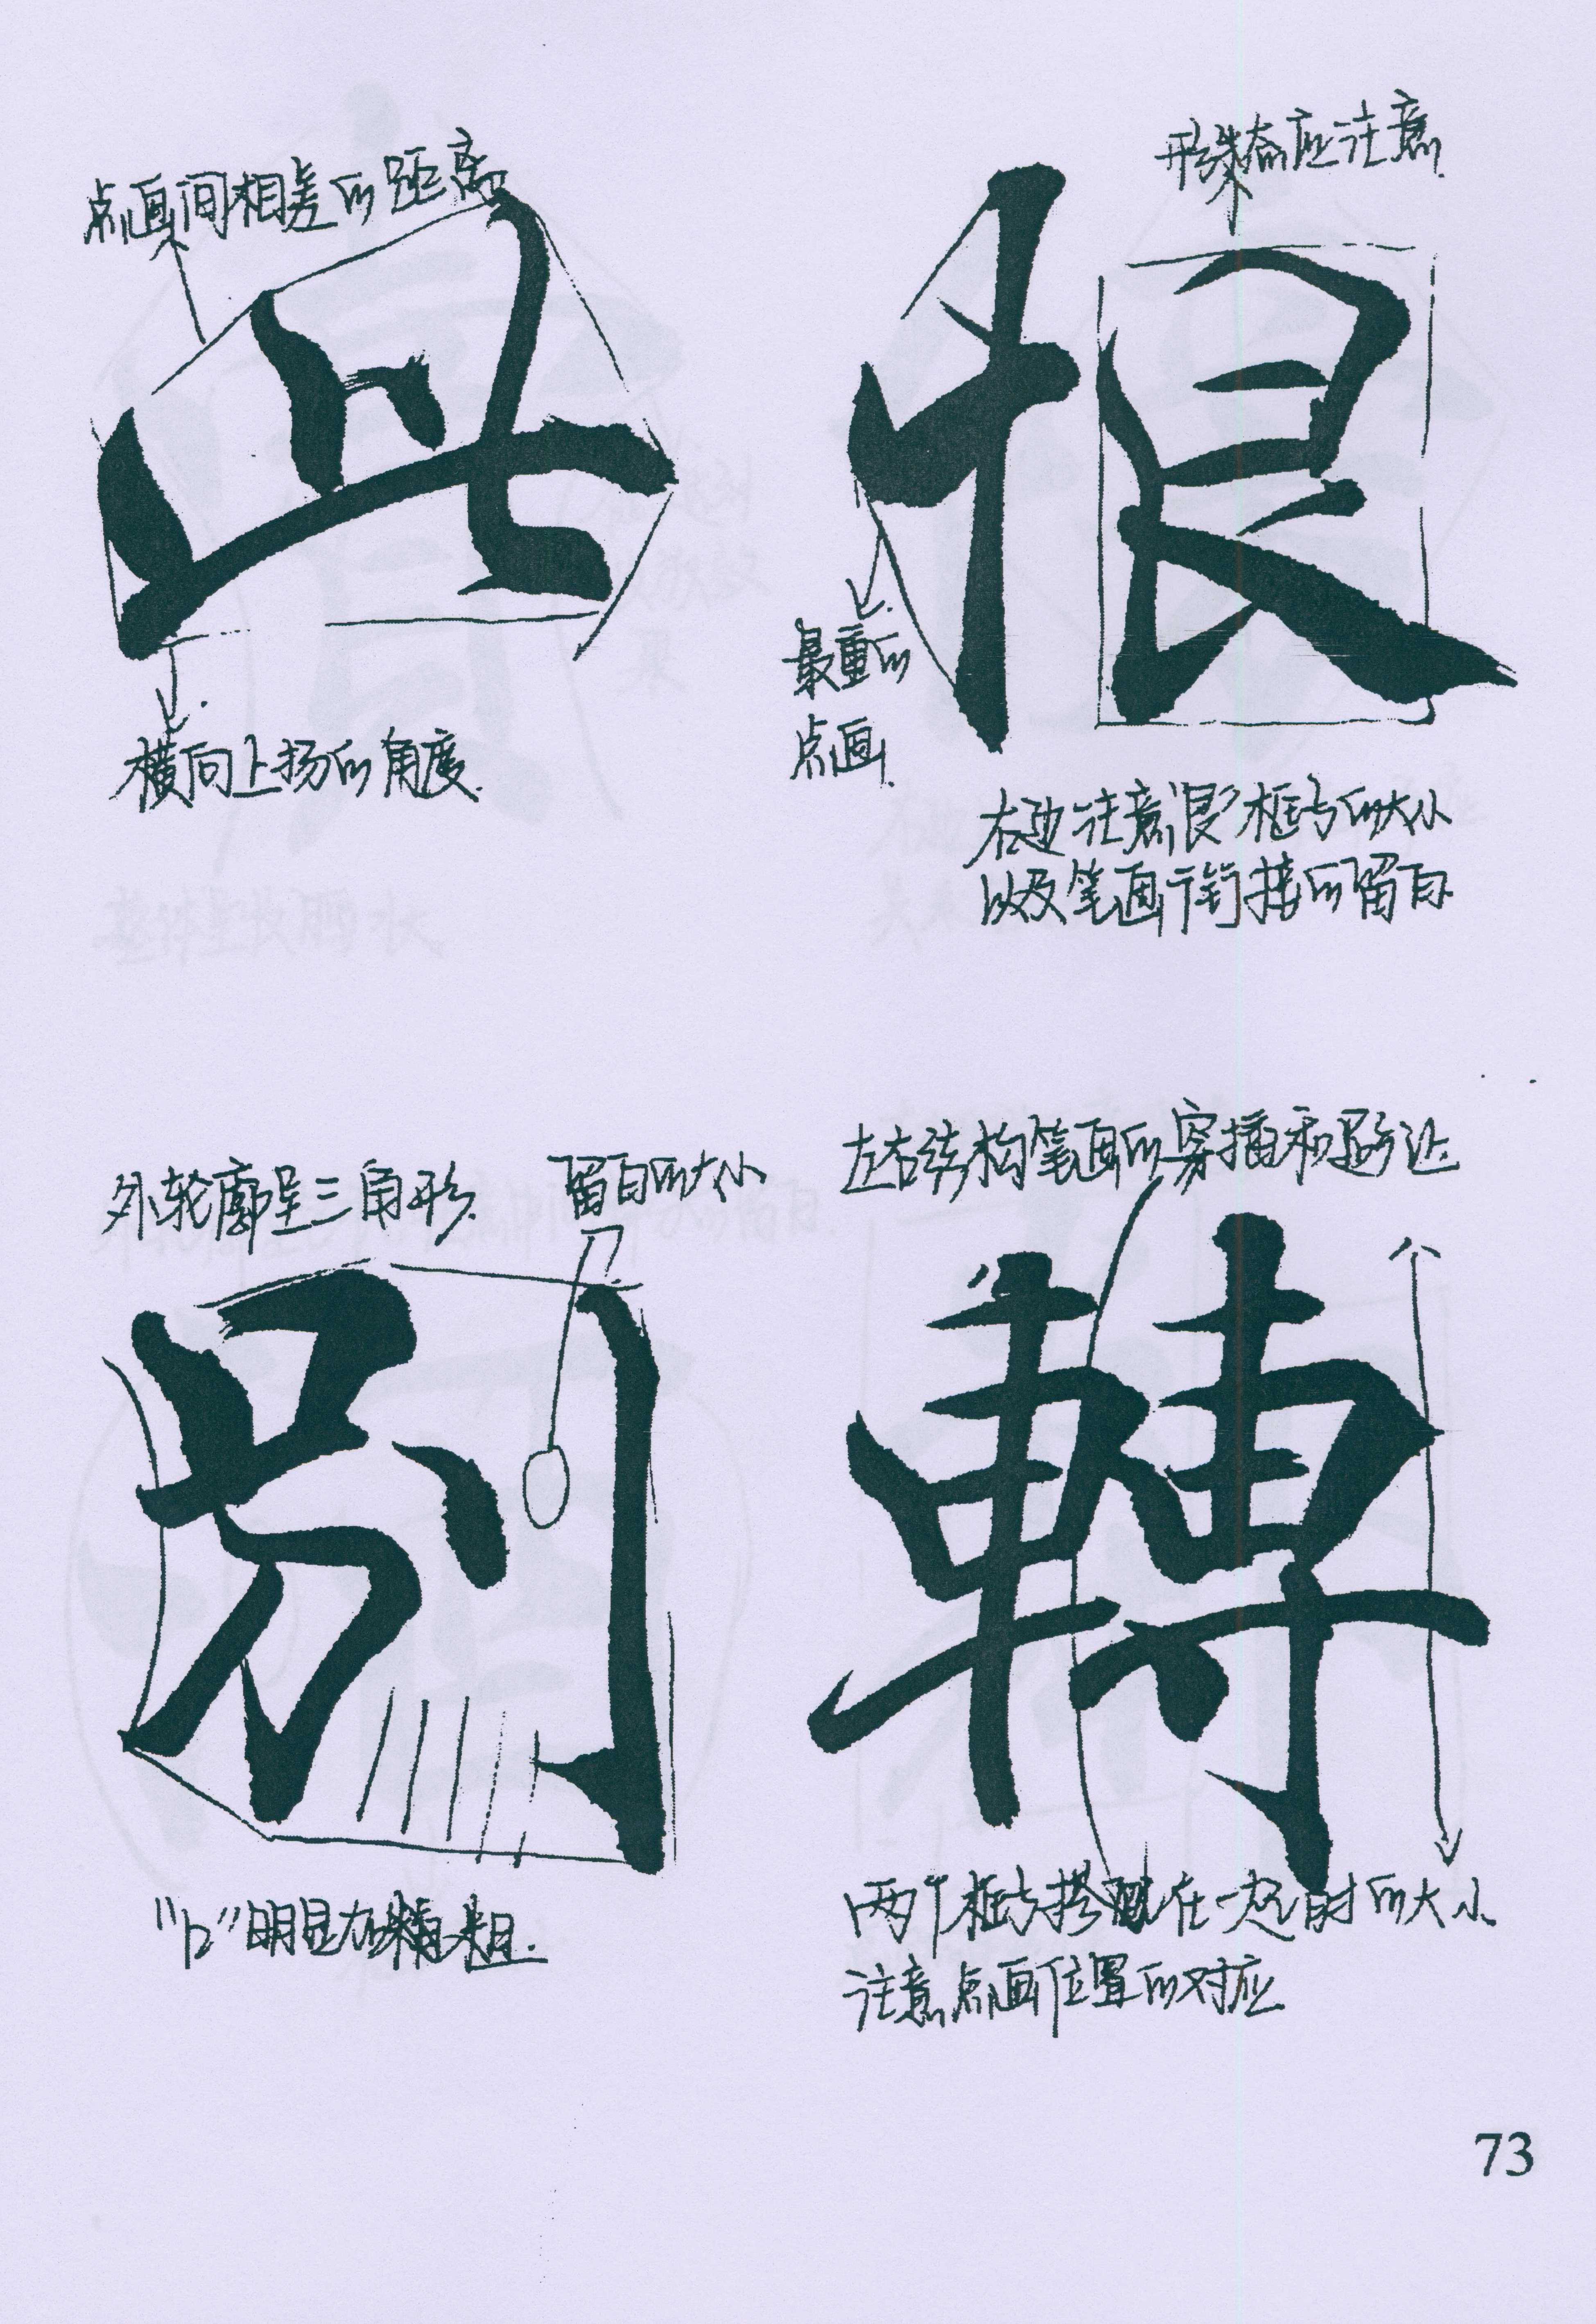 点画间相差的距离
此
横向上扬的角度.
形态应注意.
恨
最重的
点画.
右边注意"艮"框与的大小
以及笔画衔接的留白.
外轮廓呈三角形. 留白的大小
别
"卜"明显加粗.
左右结构笔画的穿插和避让
轉
两个框与搭配在一起时的大小
注意点画位置的对应
73